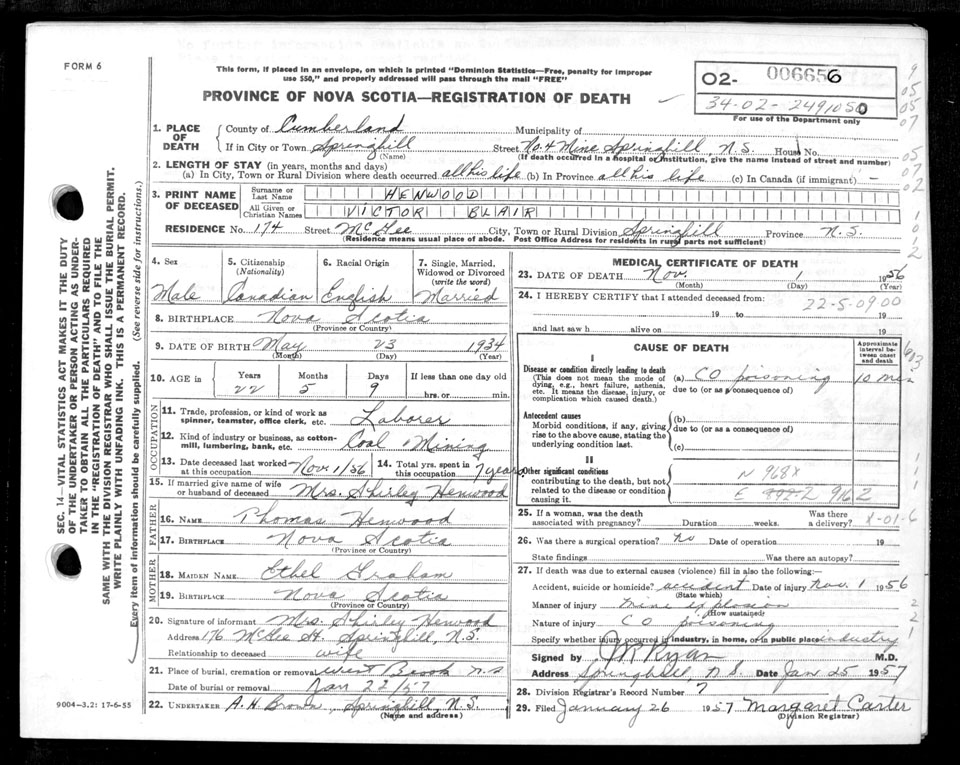 FORM 6
This form, if placed in an envelope, on which is printed "Dominion Statistics—Free, penalty for improper
use $50," and properly addressed will pass through the mail "FREE"
PROVINCE OF NOVA SCOTIA—REGISTRATION OF DEATH
02- 006656
34-02-2491050
For use of the Department only
9
05
05
07
05
07
02
1
01
2
SEC. 14—VITAL STATISTICS ACT MAKES IT THE DUTY
OF THE UNDERTAKER OR PERSON ACTING AS UNDER-
TAKER TO OBTAIN ALL THE PARTICULARS REQUIRED
IN THE "REGISTRATION OF DEATH" AND TO FILE THE
SAME WITH THE DIVISION REGISTRAR WHO SHALL ISSUE THE BURIAL PERMIT.
WRITE PLAINLY WITH UNFADING INK. THIS IS A PERMANENT RECORD.
Every item of information should be carefully supplied. (See reverse side for instructions.)
1. PLACE OF DEATH
County of Cumberland Municipality of
If in City or Town Springhill Street No. 4 Mine Springhill, N.S. House No.
(Name) (If death occurred in a hospital or institution, give the name instead of street and number)
2. LENGTH OF STAY (in years, months and days)
(a) In City, Town or Rural Division where death occurred all his life (b) In Province all his life (c) In Canada (if immigrant) —
3. PRINT NAME OF DECEASED
Surname or Last Name HENWOOD
All Given or Christian Names VICTOR BLAIR
RESIDENCE No. 174 Street McGee City, Town or Rural Division Springhill Province N.S.
(Residence means usual place of abode. Post Office Address for residents in rural parts not sufficient)
4. Sex 5. Citizenship (Nationality) 6. Racial Origin 7. Single, Married, Widowed or Divorced (write the word)
Male Canadian English Married
8. BIRTHPLACE Nova Scotia
(Province or Country)
9. DATE OF BIRTH May 23 1934
(Month) (Day) (Year)
10. AGE in Years Months Days If less than one day old
22 5 9 hrs. or min.
OCCUPATION
11. Trade, profession, or kind of work as
spinner, teamster, office clerk, etc. Laborer
12. Kind of industry or business, as cotton-
mill, lumbering, bank, etc. Coal Mining
13. Date deceased last worked at this occupation Nov 1/56 14. Total yrs. spent in this occupation 7 years
15. If married give name of wife
or husband of deceased Mrs. Shirley Henwood
FATHER
16. NAME Thomas Henwood
17. BIRTHPLACE Nova Scotia
(Province or Country)
MOTHER
18. MAIDEN NAME Ethel Graham
19. BIRTHPLACE Nova Scotia
(Province or Country)
20. Signature of informant Mrs. Shirley Henwood
Address 176 McGee St. Springhill, N.S.
Relationship to deceased wife
21. Place of burial, cremation or removal West Brook N.S
Date of burial or removal Jan 22/57
22. UNDERTAKER A.H. Brown, Springhill, N.S.
(Name and address)
9004-3.2: 17-6-55
MEDICAL CERTIFICATE OF DEATH
23. DATE OF DEATH Nov. 1 1956
(Month) (Day) (Year)
24. I HEREBY CERTIFY that I attended deceased from:
22-5-0900
19 to 19
and last saw h alive on 19
CAUSE OF DEATH
Approximate interval between onset and death
I
Disease or condition directly leading to death
(This does not mean the mode of
dying, e.g., heart failure, asthenia,
etc. It means the disease, injury, or
complication which caused death.)
(a) CO poisoning 10 min
due to (or as a consequence of)
Antecedent causes
Morbid conditions, if any, giving
rise to the above cause, stating the
underlying condition last.
(b)
due to (or as a consequence of)
(c)
II
Other significant conditions
contributing to the death, but not
related to the disease or condition
causing it.
N 968X
E 962
25. If a woman, was the death
associated with pregnancy? Duration weeks. Was there a delivery? X-01-6
26. Was there a surgical operation? no Date of operation 19
State findings Was there an autopsy?
27. If death was due to external causes (violence) fill in also the following:—
Accident, suicide or homicide? accident Date of injury Nov. 1 1956
(State which)
Manner of injury mine explosion
(How sustained)
Nature of injury CO poisoning
Specify whether injury occurred in industry, in home, or in public place industry
Signed by J M Ryan M.D.
Address Springhill, N.S. Date Jan 25 1957
28. Division Registrar's Record Number 7
29. Filed January 26 1957 Margaret Carter
(Division Registrar)